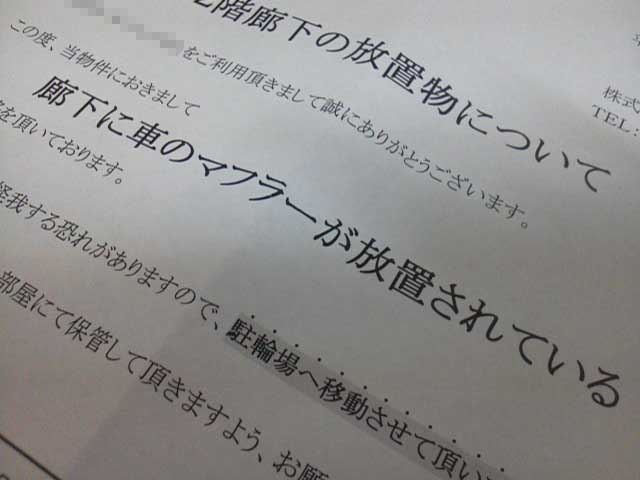 2階廊下の放置物について
株式
TEL.
をご利用頂きまして誠にありがとうございます。
この度、当物件におきまして
廊下に車のマフラーが放置されている
を頂いております。
怪我する恐れがありますので、駐輪場へ移動させて頂い
部屋にて保管して頂きますよう、お願